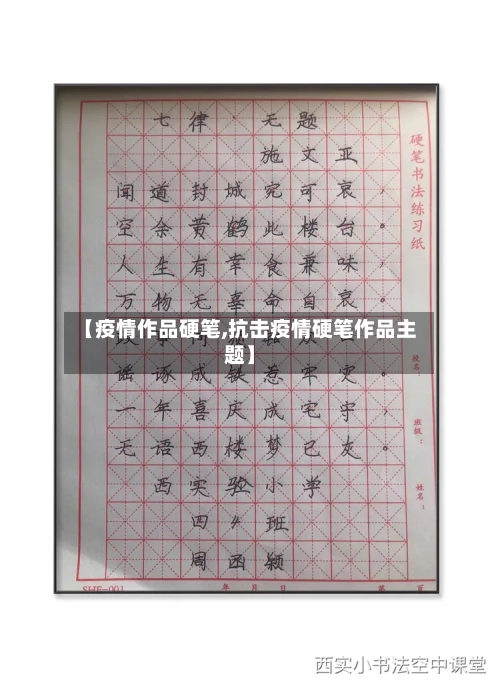 七律·无题
施文亚
闻道封城宛可哀，
空余黄鹤此楼台。
人生有幸食兼味，
万物无辜命自哀。
【疫情作品硬笔,抗击疫情硬笔作品主
题】
谣诼成
惹牢灾，
一年喜庆成宅守，
无语西楼梦已灰。
西实验小学
四4班
周函颍
硬笔书法练习纸
校名：
班级：
姓名：
SHF-001
年 月 日
第 页
西实小书法空中课堂